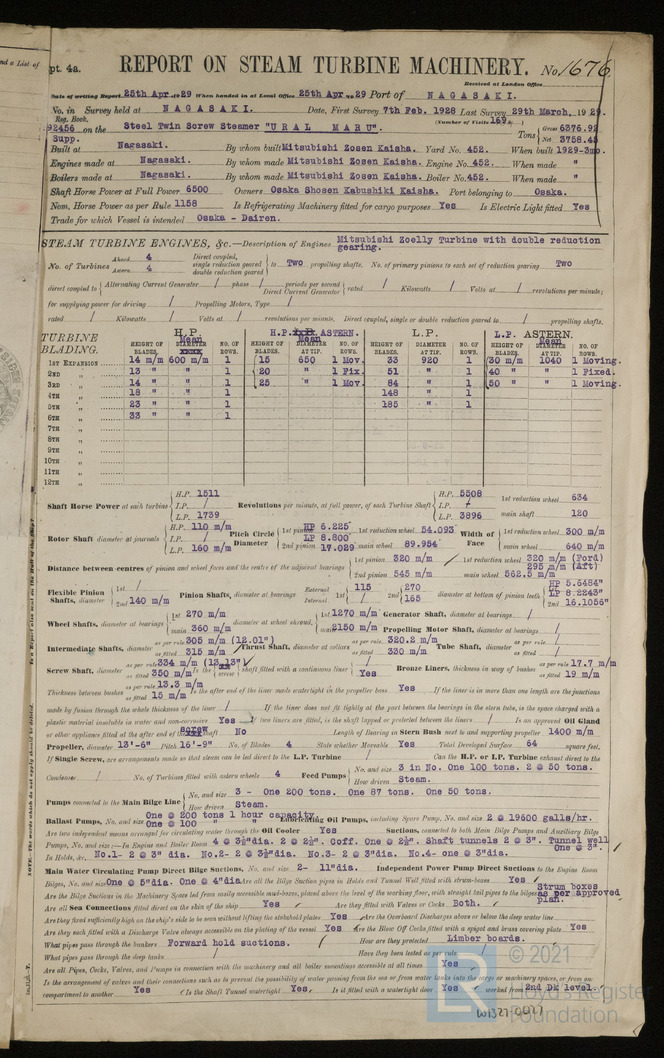 nd a List of
pt. 4a.
REPORT ON STEAM TURBINE MACHINERY. No. 1676
Received at London Office
Date of writing Report 25th Apr 1929 When handed in at Local Office 25th Apr. 1929 Port of NAGASAKI.
No. in Survey held at NAGASAKI. Date, First Survey 7th Feb. 1928 Last Survey 29th March, 1929.
Reg. Book. (Number of Visits 169)
92456 on the Steel Twin Screw Steamer "URAL MARU". Tons Gross 6376.92
Supp. Net 3758.45
Built at Nagasaki. By whom built Mitsubishi Zosen Kaisha. Yard No. 452. When built 1929-3mo.
Engines made at Nagasaki. By whom made Mitsubishi Zosen Kaisha. Engine No. 452. When made "
Boilers made at Nagasaki. By whom made Mitsubishi Zosen Kaisha. Boiler No. 452. When made "
Shaft Horse Power at Full Power 6500 Owners Osaka Shosen Kabushiki Kaisha. Port belonging to Osaka.
Nom. Horse Power as per Rule 1158 Is Refrigerating Machinery fitted for cargo purposes Yes Is Electric Light fitted Yes
Trade for which Vessel is intended Osaka - Dairen.
STEAM TURBINE ENGINES, &c.—Description of Engines Mitsubishi Zoelly Turbine with double reduction
gearing.
No. of Turbines Ahead 4 Astern 4 Direct coupled, single reduction geared double reduction geared to Two propelling shafts. No. of primary pinions to each set of reduction gearing Two
direct coupled to Alternating Current Generator / phase / periods per second Direct Current Generator rated / Kilowatts / Volts at / revolutions per minute;
for supplying power for driving / Propelling Motors, Type /
rated / Kilowatts / Volts at / revolutions per minute. Direct coupled, single or double reduction geared to / propelling shafts.
TURBINE BLADING. H.P. H.P. ASTERN. L.P. L.P. ASTERN.
HEIGHT OF BLADES. Mean DIAMETER NO. OF ROWS. HEIGHT OF BLADES. Mean DIAMETER AT TIP. NO. OF ROWS. HEIGHT OF BLADES. DIAMETER AT TIP. NO. OF ROWS. HEIGHT OF BLADES. Mean DIAMETER AT TIP. NO. OF ROWS.
1ST EXPANSION 14 m/m 600 m/m 1 15 650 1 Mov. 33 920 1 30 m/m 1040 1 Moving.
2ND " 13 " " 1 20 " 1 Fix. 51 " 1 40 " " 1 Fixed.
3RD " 14 " " 1 25 " 1 Mov. 84 " 1 50 " " 1 Moving.
4TH " 18 " " 1 148 " 1
5TH " 23 " " 1 185 " 1
6TH " 33 " " 1
7TH "
8TH "
9TH "
10TH "
11TH "
12TH "
Shaft Horse Power at each turbine H.P. 1511 I.P. / L.P. 1739 Revolutions per minute, at full power, of each Turbine Shaft H.P. 5508 I.P. / L.P. 3896 1st reduction wheel 634 main shaft 120
Rotor Shaft diameter at journals H.P. 110 m/m I.P. / L.P. 160 m/m Pitch Circle Diameter 1st pinion HP 6.225 LP 8.800 2nd pinion 17.029 1st reduction wheel 54.093 main wheel 89.954 Width of Face 1st reduction wheel 300 m/m main wheel 640 m/m
Distance between centres of pinion and wheel faces and the centre of the adjacent bearings 1st pinion 320 m/m 2nd pinion 545 m/m 1st reduction wheel 320 m/m (Ford) 295 m/m (Aft) main wheel 562.5 m/m
Flexible Pinion Shafts, diameter 1st / 2nd 140 m/m Pinion Shafts, diameter at bearings External 115 Internal / 1st 2nd 270 165 diameter at bottom of pinion teeth HP 5.6484" LP 8.2243" 2nd 16.1056"
Wheel Shafts, diameter at bearings 1st 270 m/m main 360 m/m diameter at wheel shroud, 1st 1270 m/m main 2150 m/m Generator Shaft, diameter at bearings / Propelling Motor Shaft, diameter at bearings /
Intermediate Shafts, diameter as per rule 305 m/m (12.01") as fitted 315 m/m Thrust Shaft, diameter at collars as per rule 320.2 m/m as fitted 330 m/m Tube Shaft, diameter as per rule / as fitted /
Screw Shaft, diameter as per rule 334 m/m (13.13") as fitted 350 m/m Is the screw shaft fitted with a continuous liner Yes Bronze Liners, thickness in way of bushes as per rule 17.7 m/m as fitted 19 m/m
Thickness between bushes as per rule 13.3 m/m as fitted 15 m/m Is the after end of the liner made watertight in the propeller boss Yes If the liner is in more than one length are the junctions
made by fusion through the whole thickness of the liner / If the liner does not fit tightly at the part between the bearings in the stern tube, is the space charged with a
plastic material insoluble in water and non-corrosive Yes If two liners are fitted, is the shaft lapped or protected between the liners / Is an approved Oil Gland
or other appliance fitted at the after end of the screw shaft No Length of Bearing in Stern Bush next to and supporting propeller 1400 m/m
Propeller, diameter 13'-6" Pitch 16'-9" No. of Blades 4 State whether Moveable Yes Total Developed Surface 64 square feet.
If Single Screw, are arrangements made so that steam can be led direct to the L.P. Turbine / Can the H.P. or I.P. Turbine exhaust direct to the
Condenser / No. of Turbines fitted with astern wheels 4 Feed Pumps No. and size 3 in No. One 100 tons. 2 @ 50 tons. How driven Steam.
Pumps connected to the Main Bilge Line No. and size 3 - One 200 tons. One 87 tons. One 50 tons. How driven Steam.
Ballast Pumps, No. and size One @ 200 tons 1 hour capacity One @ 100 " " Lubricating Oil Pumps, including Spare Pump, No. and size 2 @ 19600 galls/hr.
Are two independent means arranged for circulating water through the Oil Cooler Yes Suctions, connected to both Main Bilge Pumps and Auxiliary Bilge
Pumps, No. and size:—In Engine and Boiler Room 4 @ 3½"dia. 2 @ 2½". Coff. One @ 2½". Shaft tunnels 2 @ 3". Tunnel well One @ 3".
In Holds, &c. No.1- 2 @ 3" dia. No.2- 2 @ 3½"dia. No.3- 2 @ 3"dia. No.4- one @ 3"dia.
Main Water Circulating Pump Direct Bilge Suctions, No. 2- 11"dia. Independent Power Pump Direct Suctions to the Engine Room
Bilges, No. and size One @ 5"dia. One @ 4"dia Are all the Bilge Suction pipes in Holds and Tunnel Well fitted with strum-boxes Yes Strum boxes
Are the Bilge Suctions in the Machinery Space led from easily accessible mud-boxes, placed above the level of the working floor, with straight tail pipes to the bilges as per approved plan.
Are all Sea Connections fitted direct on the skin of the ship Yes Are they fitted with Valves or Cocks Both.
Are they fixed sufficiently high on the ship's side to be seen without lifting the stokehold plates Yes Are the Overboard Discharges above or below the deep water line
Are they each fitted with a Discharge Valve always accessible on the plating of the vessel Yes Are the Blow Off Cocks fitted with a spigot and brass covering plate Yes
What pipes pass through the bunkers Forward hold suctions. How are they protected Limber boards.
What pipes pass through the deep tanks / Have they been tested as per rule /
Are all Pipes, Cocks, Valves, and Pumps in connection with the machinery and all boiler mountings accessible at all times Yes
Is the arrangement of valves and their connections such as to prevent the possibility of water passing from the sea or from water tanks into the cargo or machinery spaces, or from one
compartment to another Yes Is the Shaft Tunnel watertight Yes. Is it fitted with a watertight door Yes worked from 2nd Dk level.
© 2021
LR
Lloyd's Register
Foundation
W1327-0027